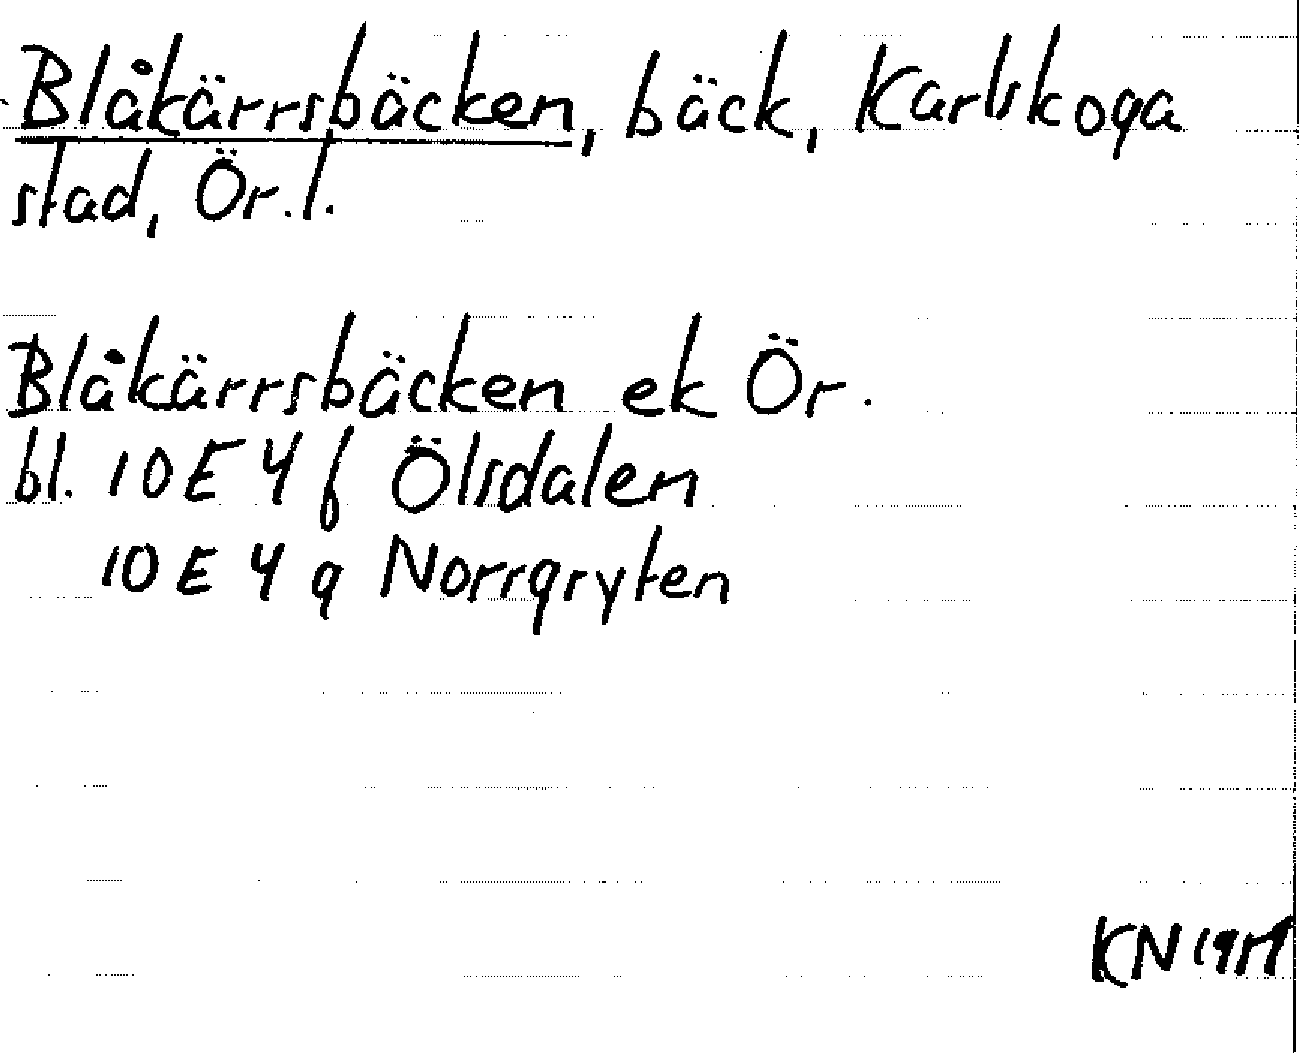 Blåkärrsbäcken, bäck, Karlskoga
stad, Ör.l.
Blåkärrsbäcken ek Ör.
bl. 10E 4f Ölsdalen
10E 4g Norrgryten
KN